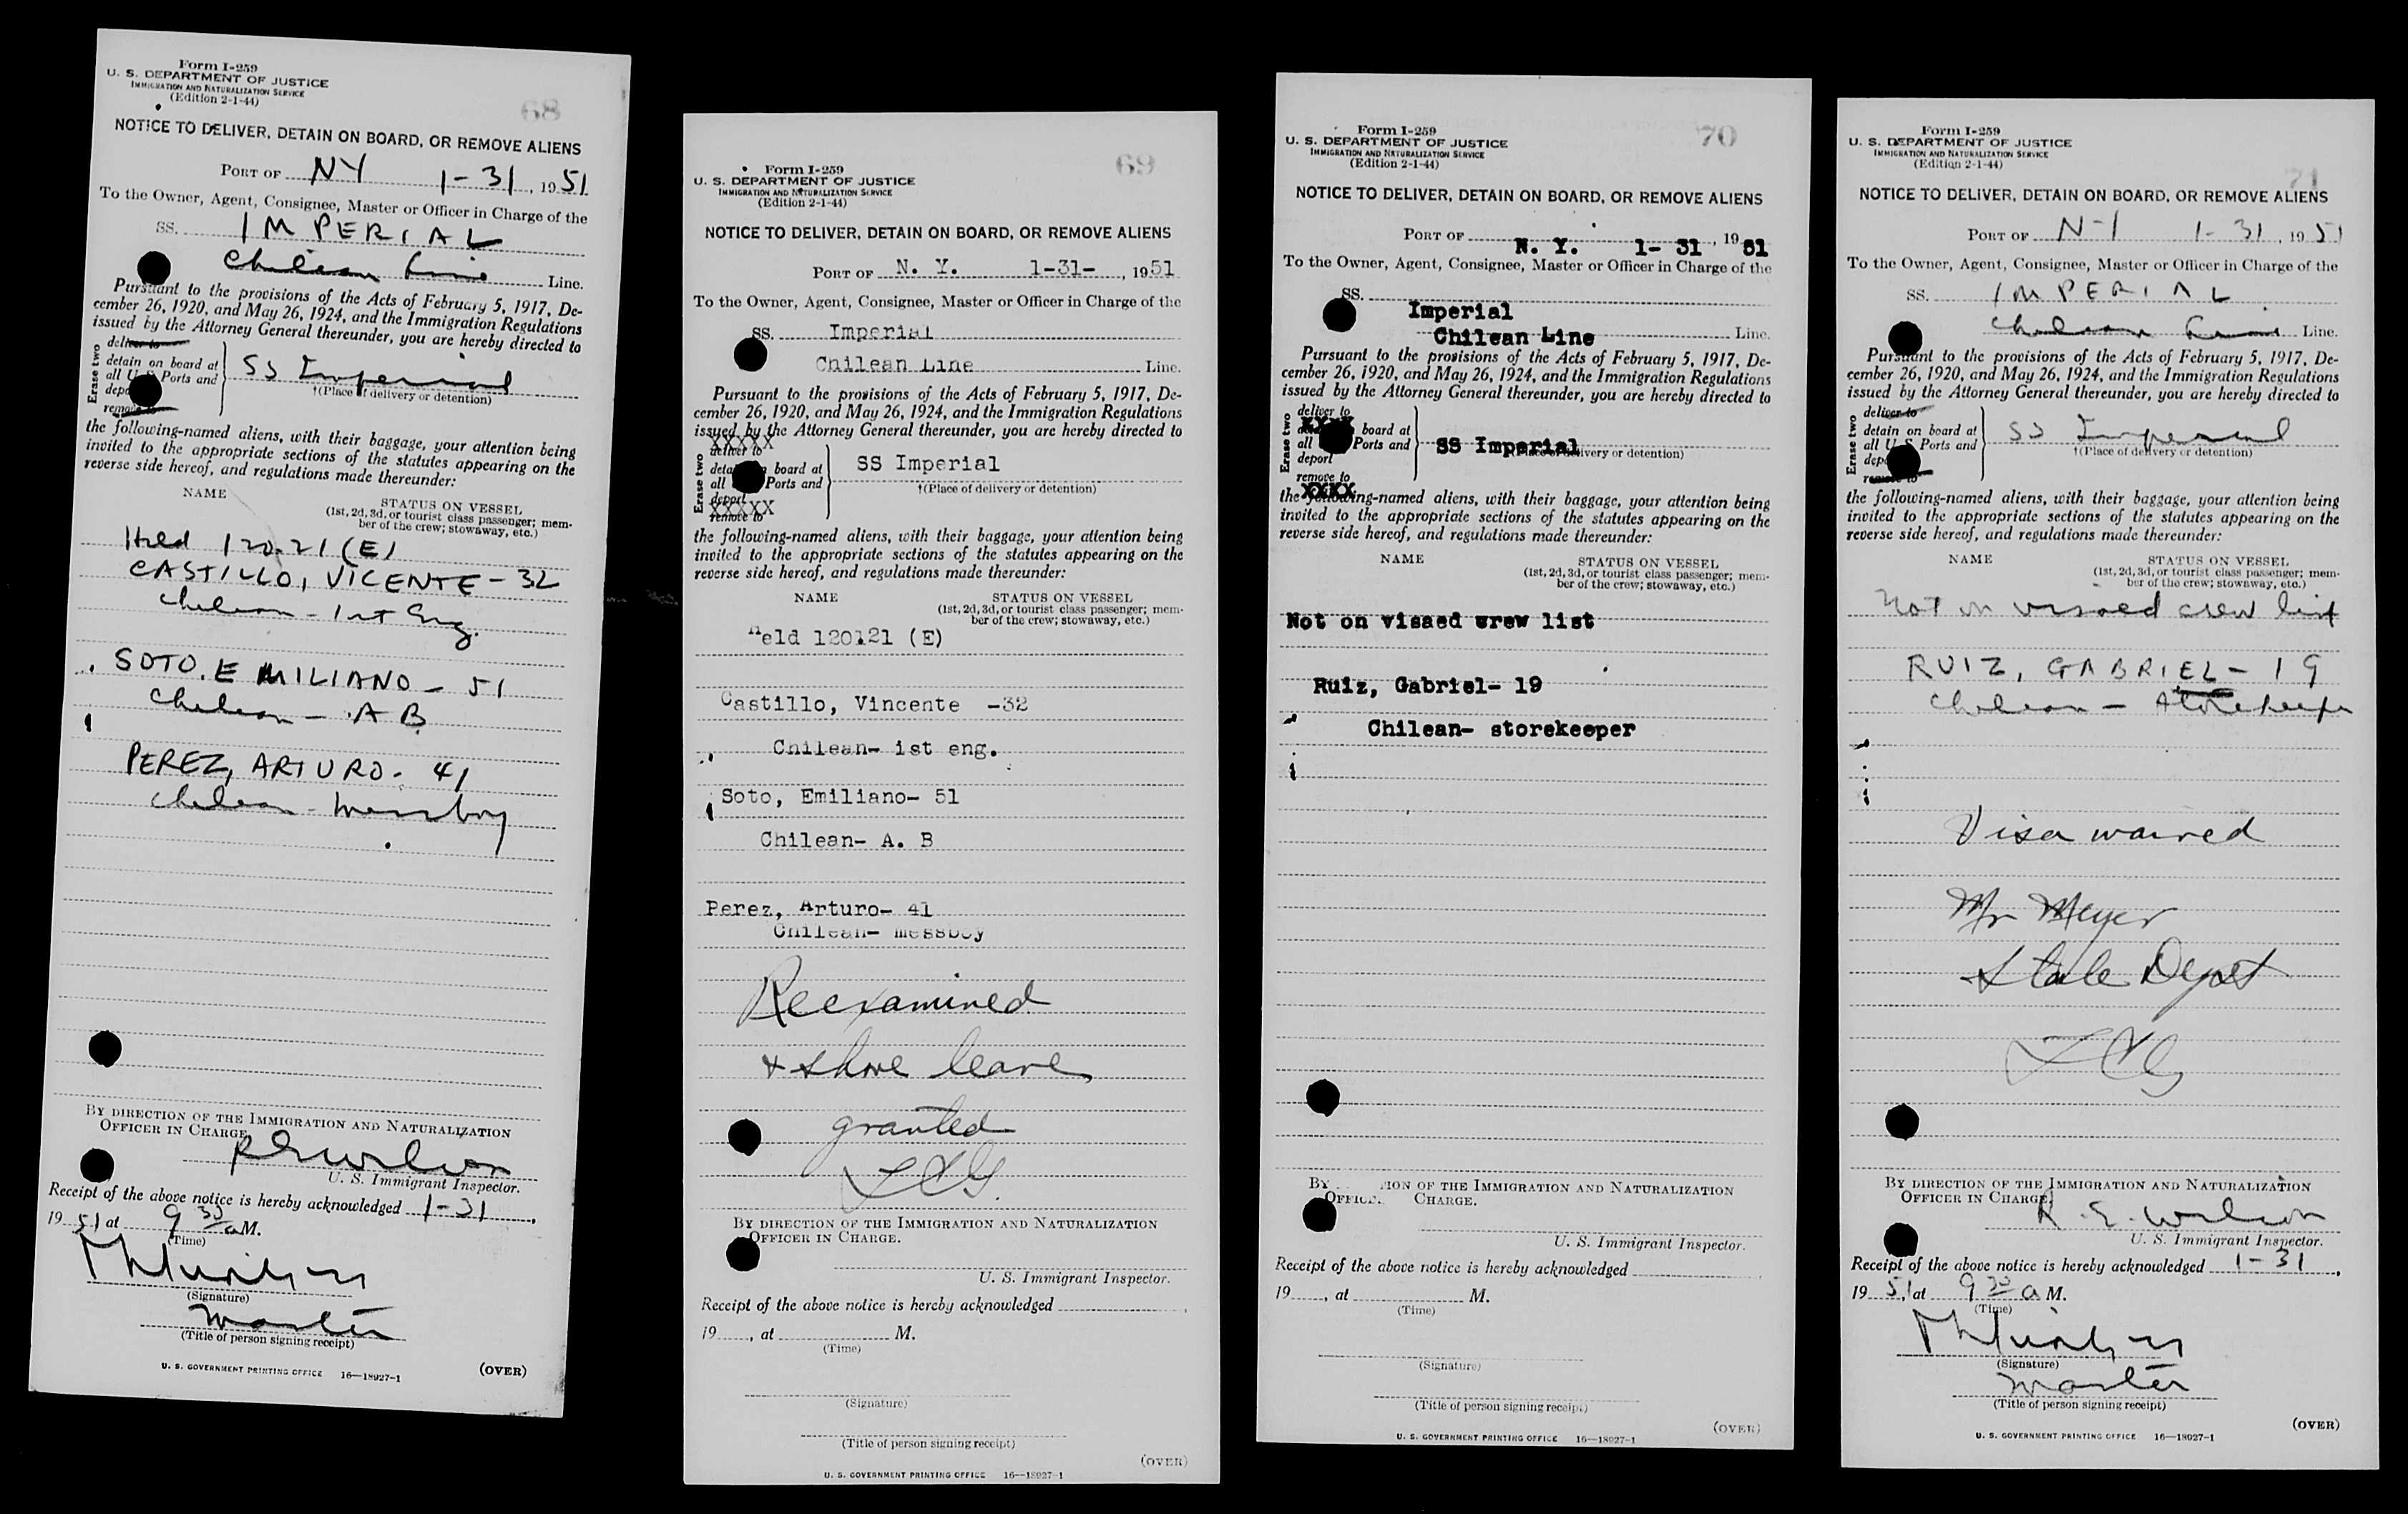 Form I-259
U. S. DEPARTMENT OF JUSTICE
IMMIGRATION AND NATURALIZATION SERVICE
(Edition 2-1-44)
68
NOTICE TO DELIVER, DETAIN ON BOARD, OR REMOVE ALIENS
PORT OF NY 1-31, 1951
To the Owner, Agent, Consignee, Master or Officer in Charge of the
SS. IMPERIAL
Chilean Line Line.
Pursuant to the provisions of the Acts of February 5, 1917, De-
cember 26, 1920, and May 26, 1924, and the Immigration Regulations
issued by the Attorney General thereunder, you are hereby directed to
Erase two
deliver to
detain on board at
all U S Ports and
remove to
SS Imperial
†(Place of delivery or detention)
the following-named aliens, with their baggage, your attention being
invited to the appropriate sections of the statutes appearing on the
reverse side hereof, and regulations made thereunder:
NAME STATUS ON VESSEL
(1st, 2d, 3d, or tourist class passenger; mem-
ber of the crew; stowaway, etc.)
Held 120.21 (E)
CASTILLO, VICENTE - 32
Chilean - 1st Eng.
SOTO, EMILIANO - 51
Chilean - AB
PEREZ, ARTURO - 41
Chilean - messboy
BY DIRECTION OF THE IMMIGRATION AND NATURALIZATION
OFFICER IN CHARGE
R E Wilson
U. S. Immigrant Inspector.
Receipt of the above notice is hereby acknowledged 1-31,
1951 at 9 30 a M.
(Time)
(Signature)
Master
(Title of person signing receipt)
U. S. GOVERNMENT PRINTING OFFICE 16—18927-1 (OVER)
Form I-259
U. S. DEPARTMENT OF JUSTICE
IMMIGRATION AND NATURALIZATION SERVICE
(Edition 2-1-44)
69
NOTICE TO DELIVER, DETAIN ON BOARD, OR REMOVE ALIENS
PORT OF N. Y. 1-31-, 1951
To the Owner, Agent, Consignee, Master or Officer in Charge of the
SS. Imperial
Chilean Line Line.
Pursuant to the provisions of the Acts of February 5, 1917, De-
cember 26, 1920, and May 26, 1924, and the Immigration Regulations
issued by the Attorney General thereunder, you are hereby directed to
XXXXX
Erase two
deliver to
board at
all Ports and
deport
XXXXX
remove to
SS Imperial
†(Place of delivery or detention)
the following-named aliens, with their baggage, your attention being
invited to the appropriate sections of the statutes appearing on the
reverse side hereof, and regulations made thereunder:
NAME STATUS ON VESSEL
(1st, 2d, 3d, or tourist class passenger; mem-
ber of the crew; stowaway, etc.)
Held 120.21 (E)
Castillo, Vincente -32
Chilean- 1st eng.
Soto, Emiliano- 51
Chilean- A. B
Perez, Arturo- 41
Chilean- messboy
Reexamined
+ shore leave
granted
BY DIRECTION OF THE IMMIGRATION AND NATURALIZATION
OFFICER IN CHARGE.
U. S. Immigrant Inspector.
Receipt of the above notice is hereby acknowledged
19, at M.
(Time)
(Signature)
(Title of person signing receipt)
(OVER)
U. S. GOVERNMENT PRINTING OFFICE 16—18927-1
Form I-259
U. S. DEPARTMENT OF JUSTICE
IMMIGRATION AND NATURALIZATION SERVICE
(Edition 2-1-44)
70
NOTICE TO DELIVER, DETAIN ON BOARD, OR REMOVE ALIENS
PORT OF N. Y. 1- 31, 1951
To the Owner, Agent, Consignee, Master or Officer in Charge of the
SS.
Imperial
Chilean Line Line.
Pursuant to the provisions of the Acts of February 5, 1917, De-
cember 26, 1920, and May 26, 1924, and the Immigration Regulations
issued by the Attorney General thereunder, you are hereby directed to
Erase two
deliver to
XXXX
board at
all Ports and
deport
remove to
SS Imperial
(Place of delivery or detention)
XXXX
the following-named aliens, with their baggage, your attention being
invited to the appropriate sections of the statutes appearing on the
reverse side hereof, and regulations made thereunder:
NAME STATUS ON VESSEL
(1st, 2d, 3d, or tourist class passenger; mem-
ber of the crew; stowaway, etc.)
Not on visaed crew list
Ruiz, Gabriel- 19
Chilean- storekeeper
BY TION OF THE IMMIGRATION AND NATURALIZATION
OFFICE CHARGE.
U. S. Immigrant Inspector.
Receipt of the above notice is hereby acknowledged
19, at M.
(Time)
(Signature)
(Title of person signing receipt)
(OVER)
U. S. GOVERNMENT PRINTING OFFICE 16—18927-1
Form I-259
U. S. DEPARTMENT OF JUSTICE
IMMIGRATION AND NATURALIZATION SERVICE
(Edition 2-1-44)
71
NOTICE TO DELIVER, DETAIN ON BOARD, OR REMOVE ALIENS
PORT OF N-Y 1-31, 1951
To the Owner, Agent, Consignee, Master or Officer in Charge of the
SS. IMPERIAL
Chilean Line Line.
Pursuant to the provisions of the Acts of February 5, 1917, De-
cember 26, 1920, and May 26, 1924, and the Immigration Regulations
issued by the Attorney General thereunder, you are hereby directed to
Erase two
deliver to
detain on board at
all U S Ports and
remove to
SS Imperial
†(Place of delivery or detention)
the following-named aliens, with their baggage, your attention being
invited to the appropriate sections of the statutes appearing on the
reverse side hereof, and regulations made thereunder:
NAME STATUS ON VESSEL
(1st, 2d, 3d, or tourist class passenger; mem-
ber of the crew; stowaway, etc.)
Not on visaed crew list
RUIZ, GABRIEL - 19
Chilean - Storekeeper
Visa waived
Mr Meyer
State Dept
BY DIRECTION OF THE IMMIGRATION AND NATURALIZATION
OFFICER IN CHARGE
R. E. Wilson
U. S. Immigrant Inspector.
Receipt of the above notice is hereby acknowledged 1-31,
1951, at 9 30 a M.
(Time)
(Signature)
Master
(Title of person signing receipt)
(OVER)
U. S. GOVERNMENT PRINTING OFFICE 16—18927-1